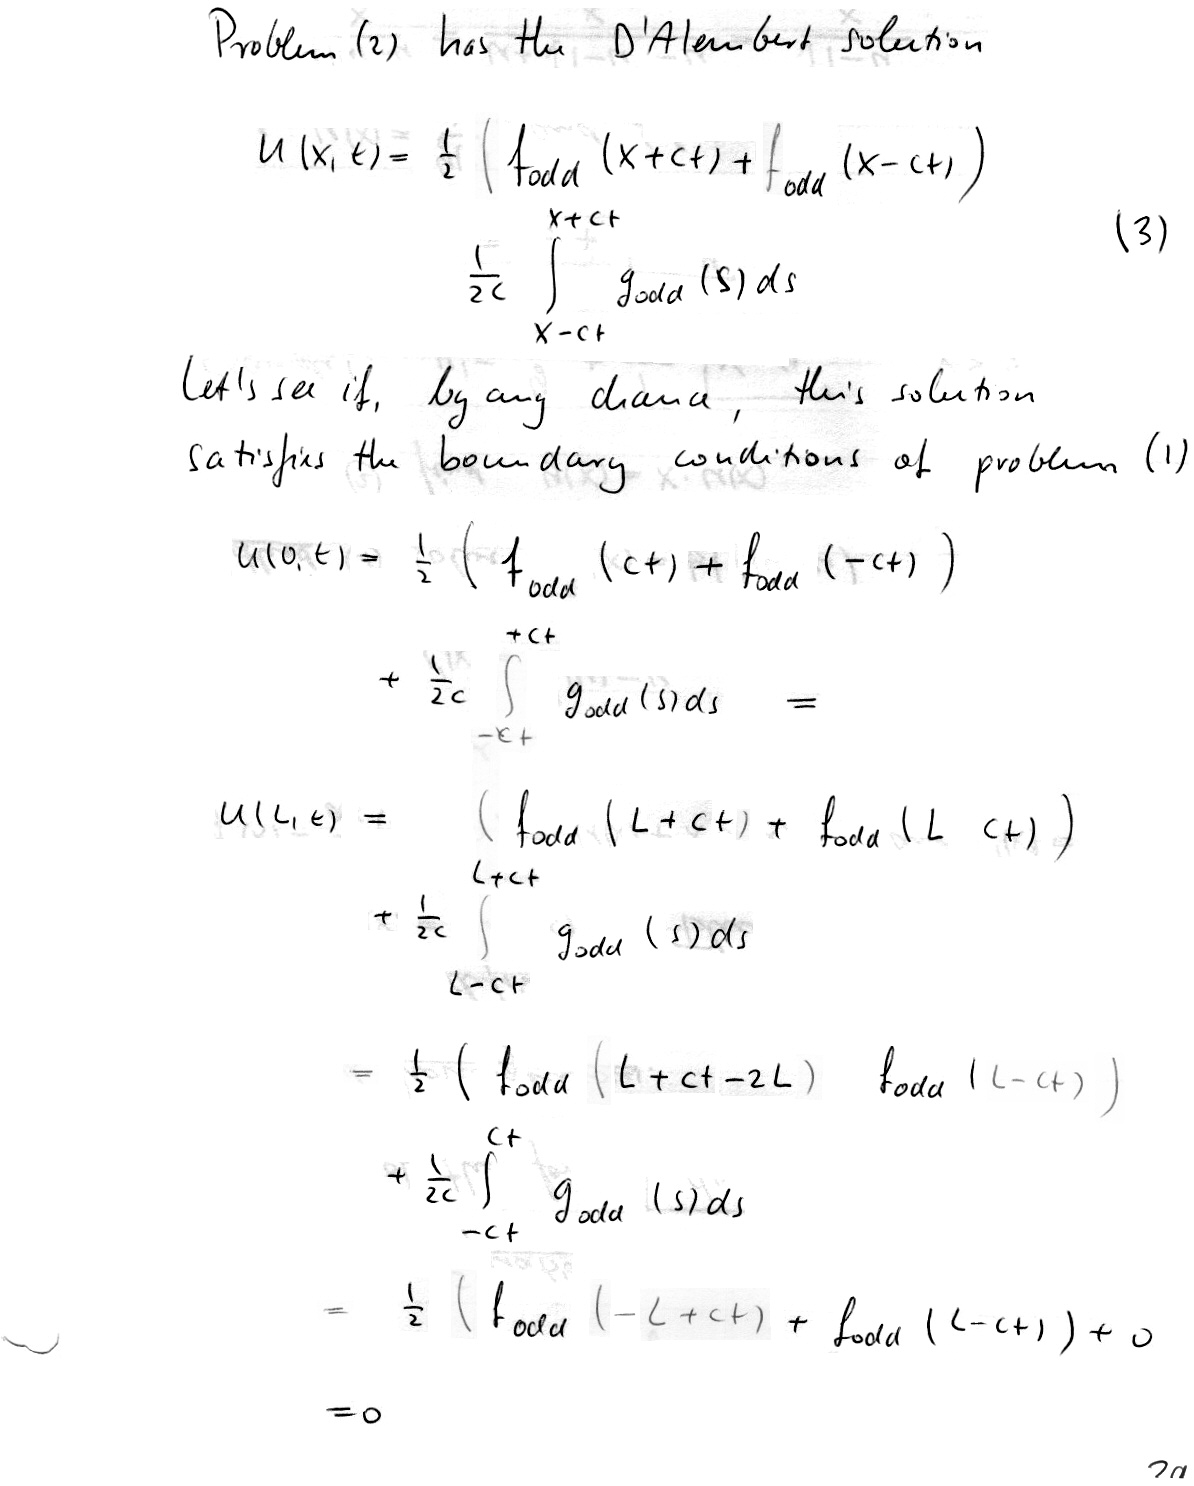 Problem (2) has the D'Alembert solution
u(x,t) = 1/2 ( f_odd (x+ct) + f_odd (x-ct) )
1/2c ∫_{x-ct}^{x+ct} g_odd (s) ds (3)
Let's see if, by any chance, this solution
satisfies the boundary conditions of problem (1)
u(0,t) = 1/2 ( f_odd (ct) + f_odd (-ct) )
+ 1/2c ∫_{-ct}^{+ct} g_odd (s) ds =
u(L,t) = ( f_odd (L+ct) + f_odd (L ct) )
+ 1/2c ∫_{L-ct}^{L+ct} g_odd (s) ds
= 1/2 ( f_odd (L+ct-2L) f_odd (L-ct) )
+ 1/2c ∫_{-ct}^{ct} g_odd (s) ds
= 1/2 ( f_odd (-L+ct) + f_odd (L-ct) ) + 0
= 0